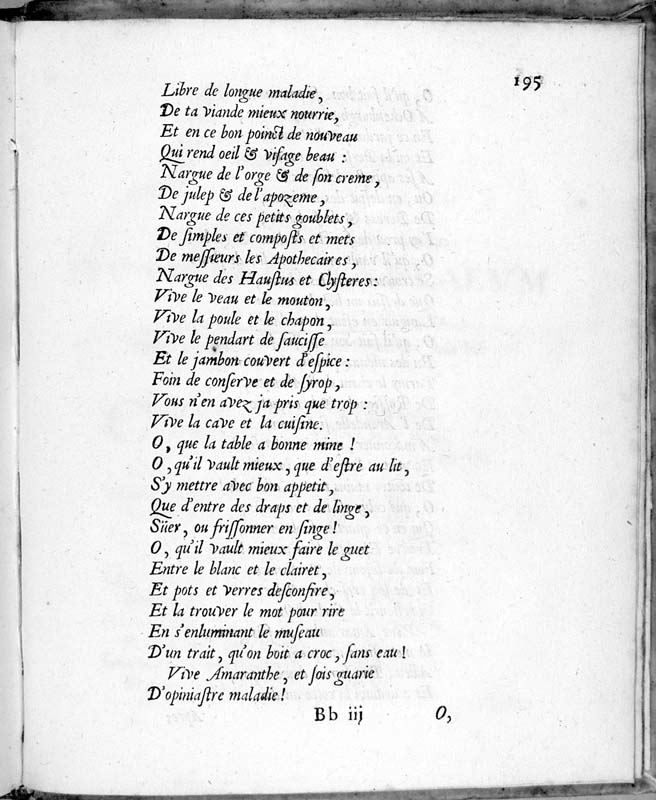 195
Libre de longue maladie,
De ta viande mieux nourrie,
Et en ce bon poinct de nouveau
Qui rend oeil & viſage beau :
Nargue de l'orge & de ſon creme,
De julep & de l'apozeme,
Nargue de ces petits goublets,
De ſimples et compoſts et mets
De meſſieurs les Apothecaires,
Nargue des Hauſtus et Clyſteres :
Vive le veau et le mouton,
Vive la poule et le chapon,
Vive le pendart de ſauciſſe
Et le jambon couvert d'eſpice :
Foin de conſerve et de ſyrop,
Vous n'en avez ja pris que trop :
Vive la cave et la cuiſine.
O, que la table a bonne mine !
O, qu'il vault mieux, que d'eſtre au lit,
S'y mettre avec bon appetit,
Que d'entre des draps et de linge,
Süer, ou friſſonner en ſinge !
O, qu'il vault mieux faire le guet
Entre le blanc et le clairet,
Et pots et verres deſconfire,
Et la trouver le mot pour rire
En s'enluminant le muſeau
D'un trait, qu'on boit a croc, ſans eau !
Vive Amaranthe, et ſois guarie
D'opiniaſtre maladie !
Bb iij O,